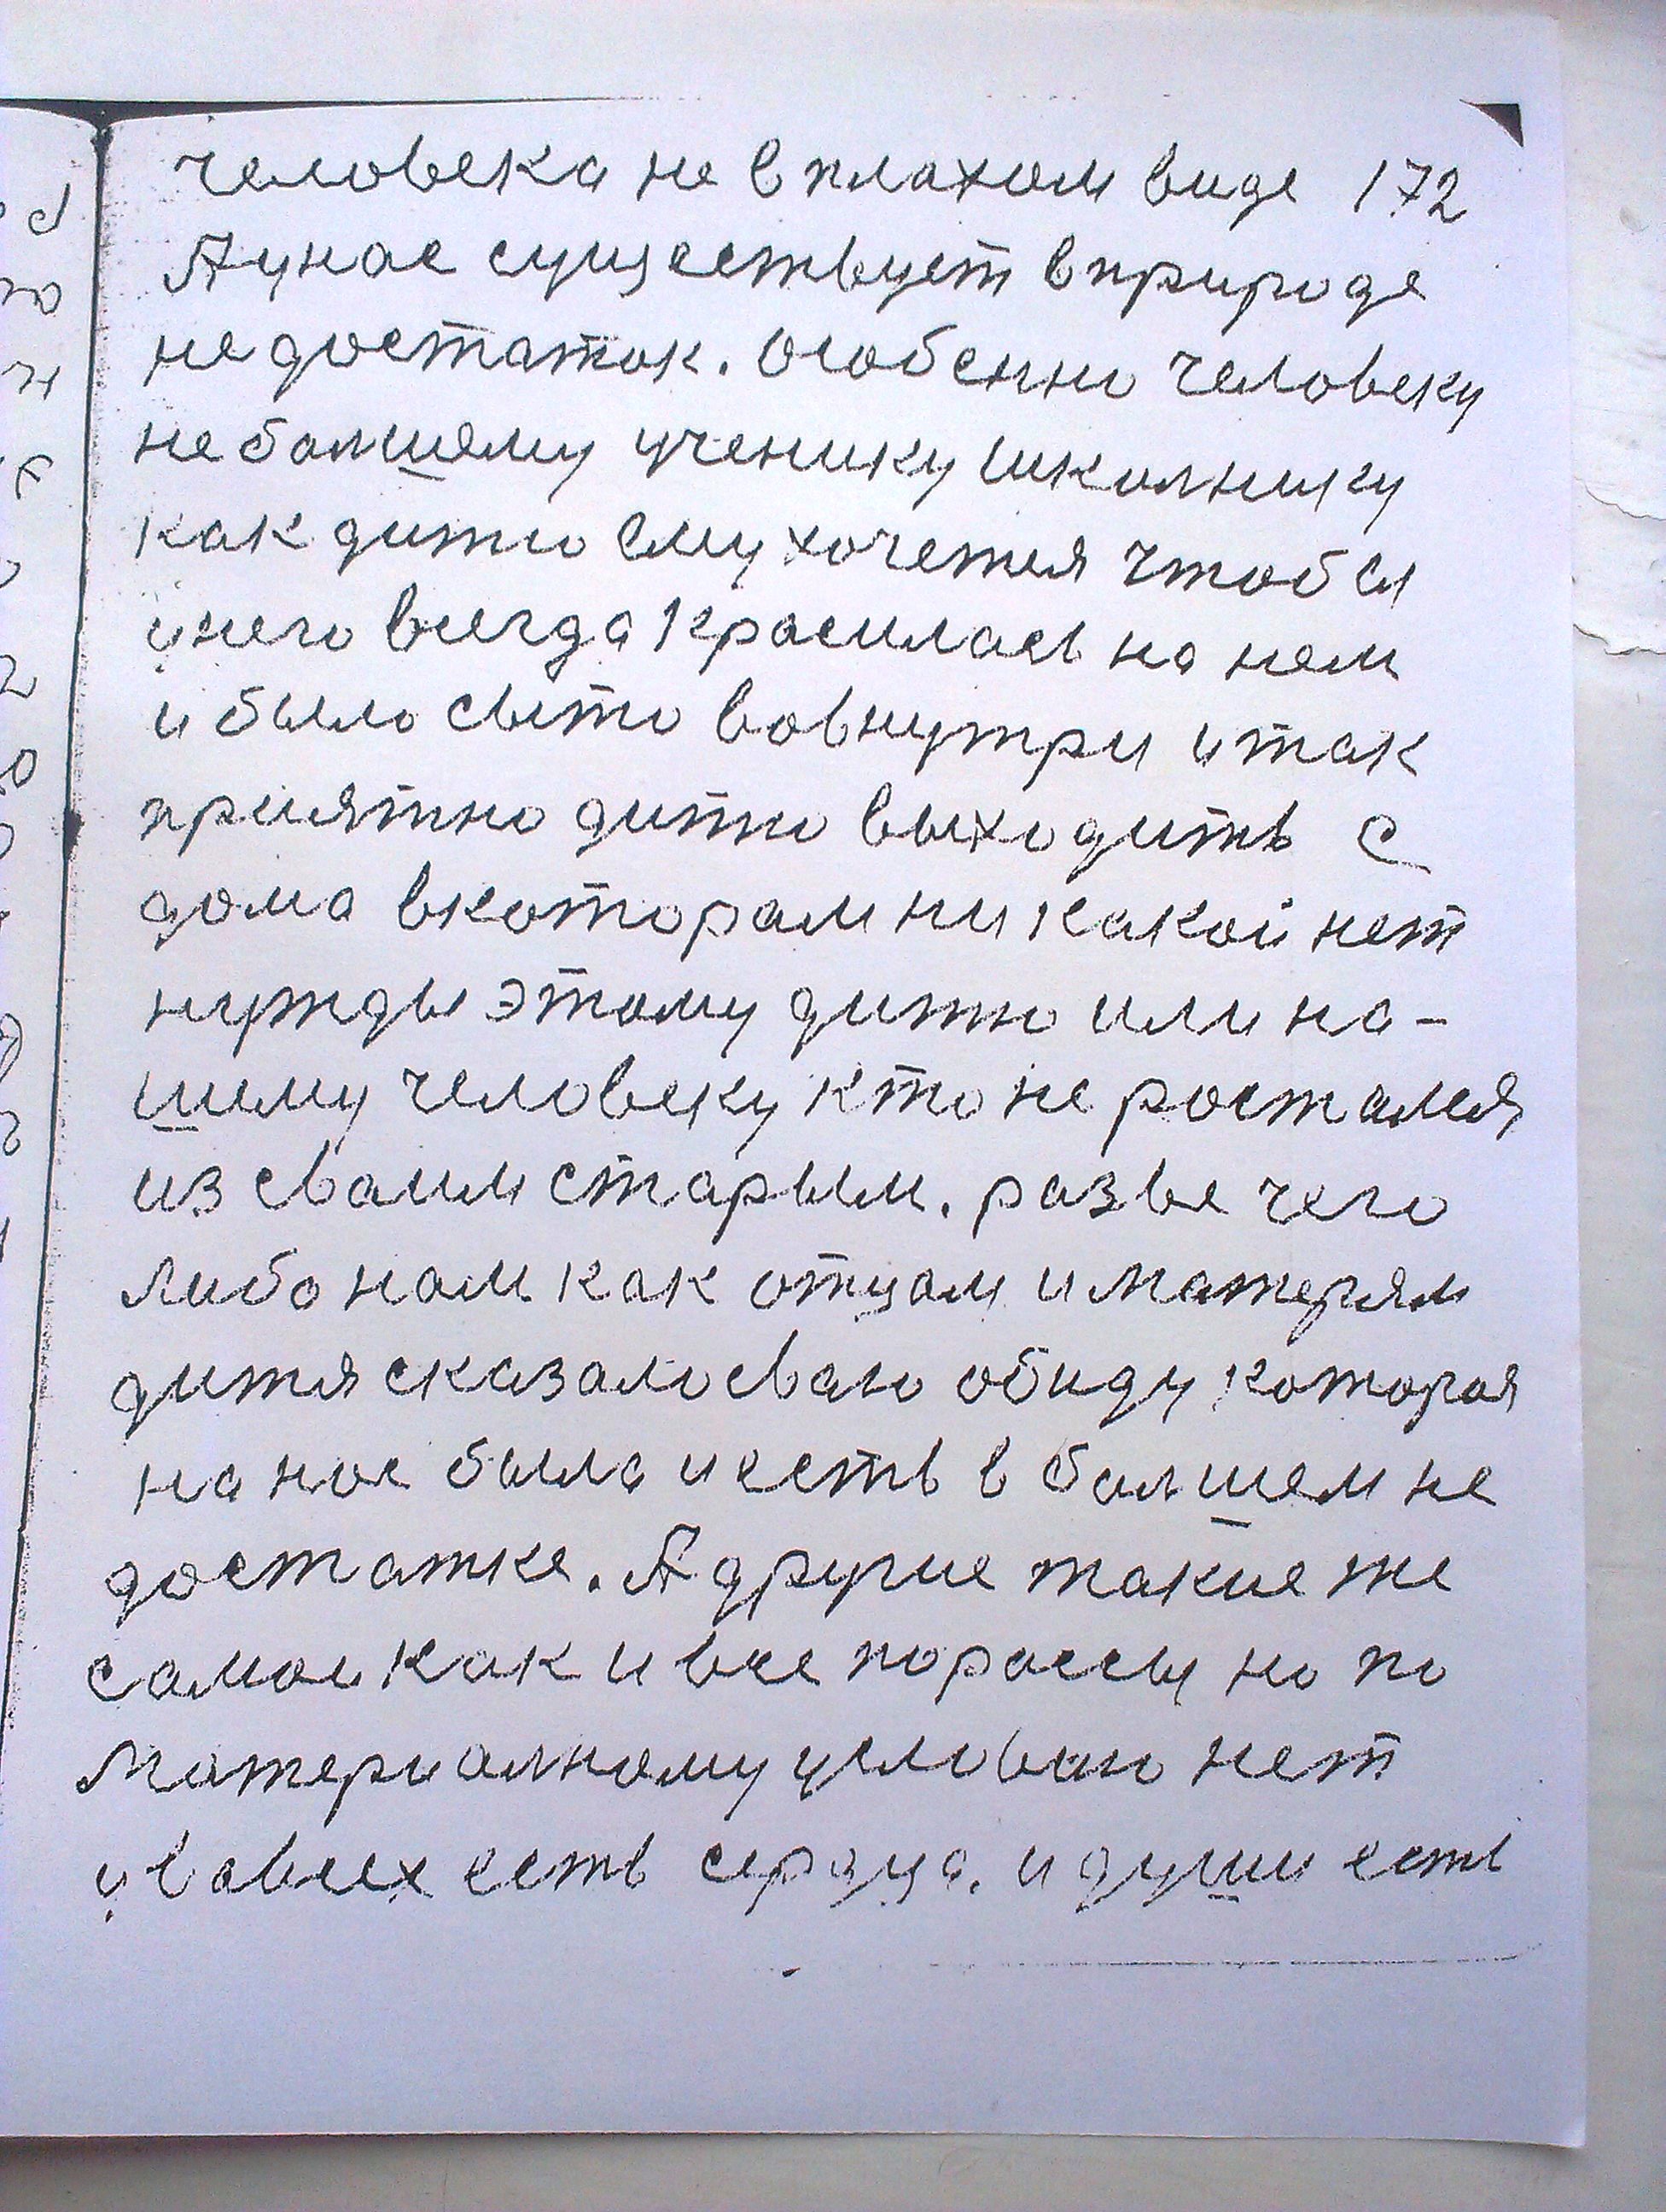 человека не в плахом виде 172
А унас существует вприроде
не достаток. Особенно человеку
небалшему ученику школнику
как дитю ему хочется чтоб ся
унего всегда красилась на нем
и было сыто вовнутри и так
приятно дитю выходить с
дома вкоторам ни какой нет
нужды этому дитю или на-
шему человеку кто не росталея
из сваим старым. разве чего
либо нам как отцам и матерям
дитя сказало сваю обиду которая
на нас была и есть в балшем не
достатке. А другие такие же
самои как и все порассы но по
материалному условию нет
у вовсех есть серзца. и души есть